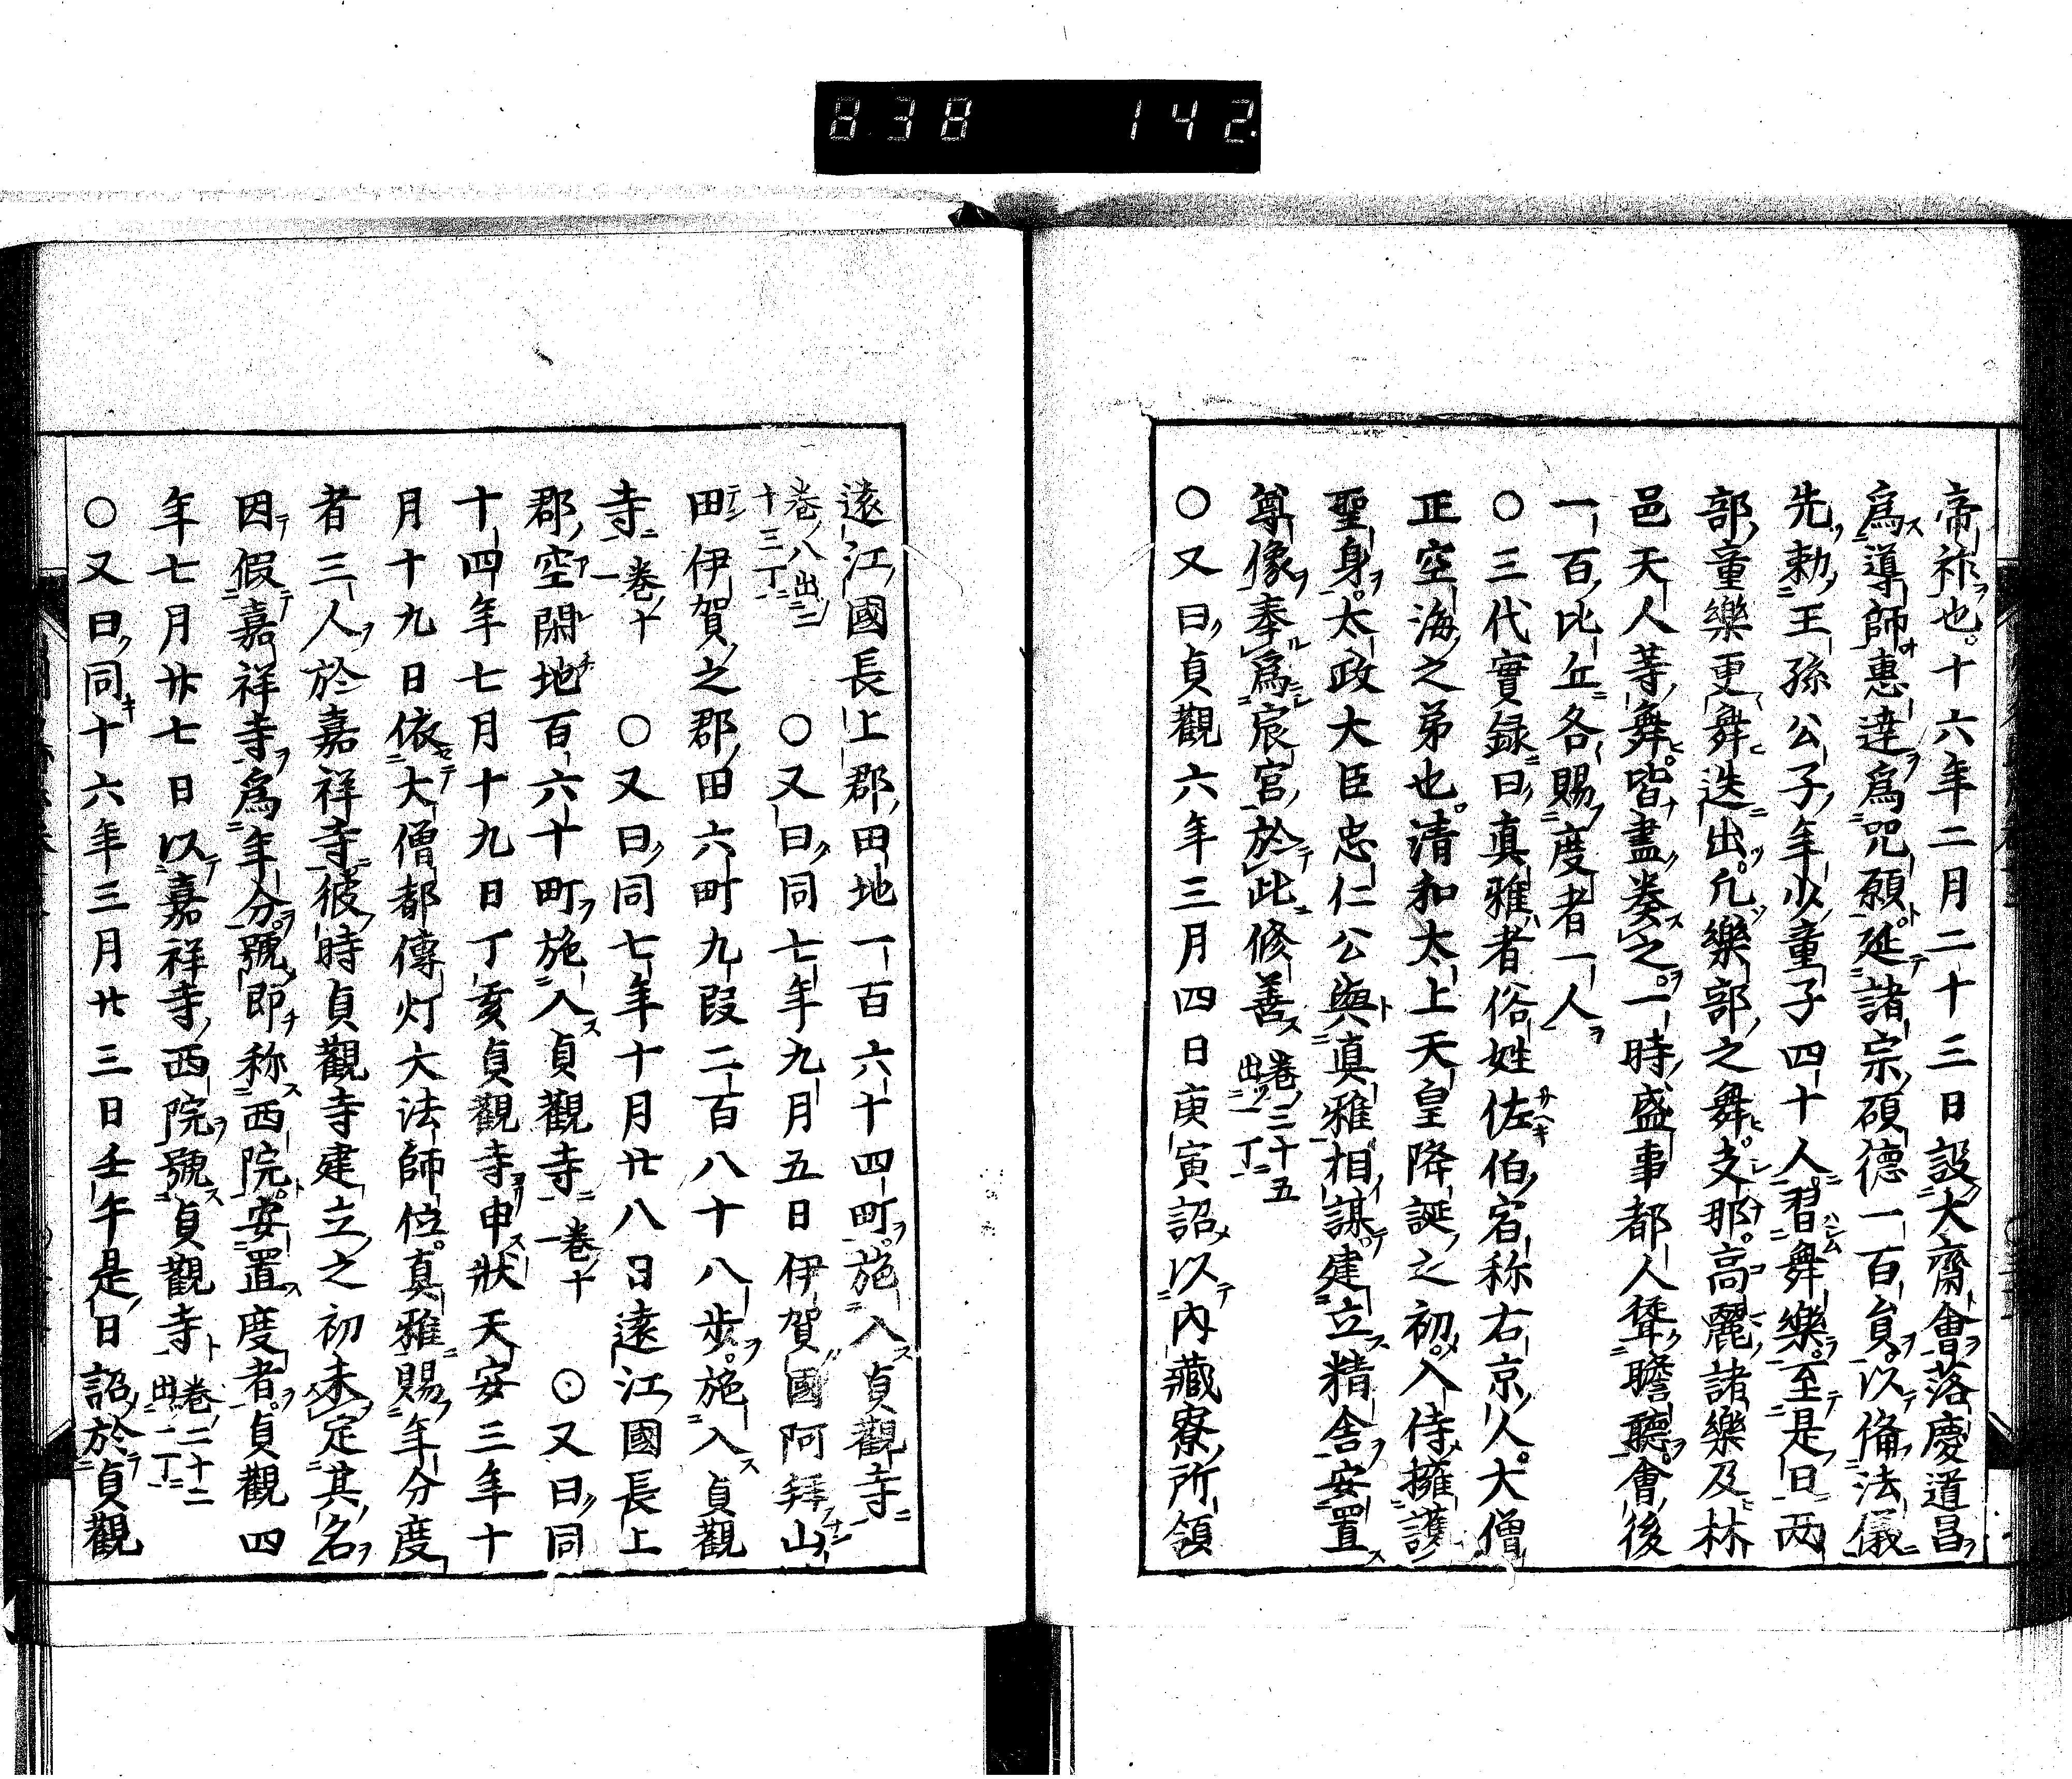 838 142
帝祚也。十六年二月二十三日設大齋會落慶道昌
爲導師惠達爲咒願延諸宗碩德一百負。以備法儀
先勅王孫公子年少童子四十人。習舞樂。至是日兩
部童樂更舞迭出。凡樂部之舞。支那。高麗諸樂及林
邑天人等舞。皆盡奏之。一時盛事都人聳瞻聽。會後
一百比丘各賜度者一人
○三代實録曰真雅者俗姓佐伯宿称右京人。大僧
正空海之弟也。清和太上天皇降誕之初。入侍擁護
聖身。太政大臣忠仁公與真雅相謀建立精舍安置
尊像奉爲宸宮於此修善 卷三十五出一丁
○又曰貞觀六年三月四日庚寅詔以內藏寮所領
遠江國長上郡田地一百六十四町。施入貞觀寺
卷八出三十三丁 ○又曰同七年九月五日伊賀國阿拜山
田伊賀之郡田六町九段二百八十八步。施入貞觀
寺 卷十一 ○又曰同七年十月廿八日遠江國長上
郡空閑地百六十町施入貞觀寺 卷十一 ○又曰同
十四年七月十九日丁亥貞觀寺申狀天安三年十
月十九日依大僧都傳灯大法師位。真雅賜年分度
者三人於嘉祥寺彼時貞觀寺建立之初未定其名
因假嘉祥寺爲年分。號即称西院。安置度者。貞觀四
年七月廿七日以嘉祥寺西院號貞觀寺 卷二十二出一丁
○又曰同十六年三月廿三日壬午是日詔於貞觀